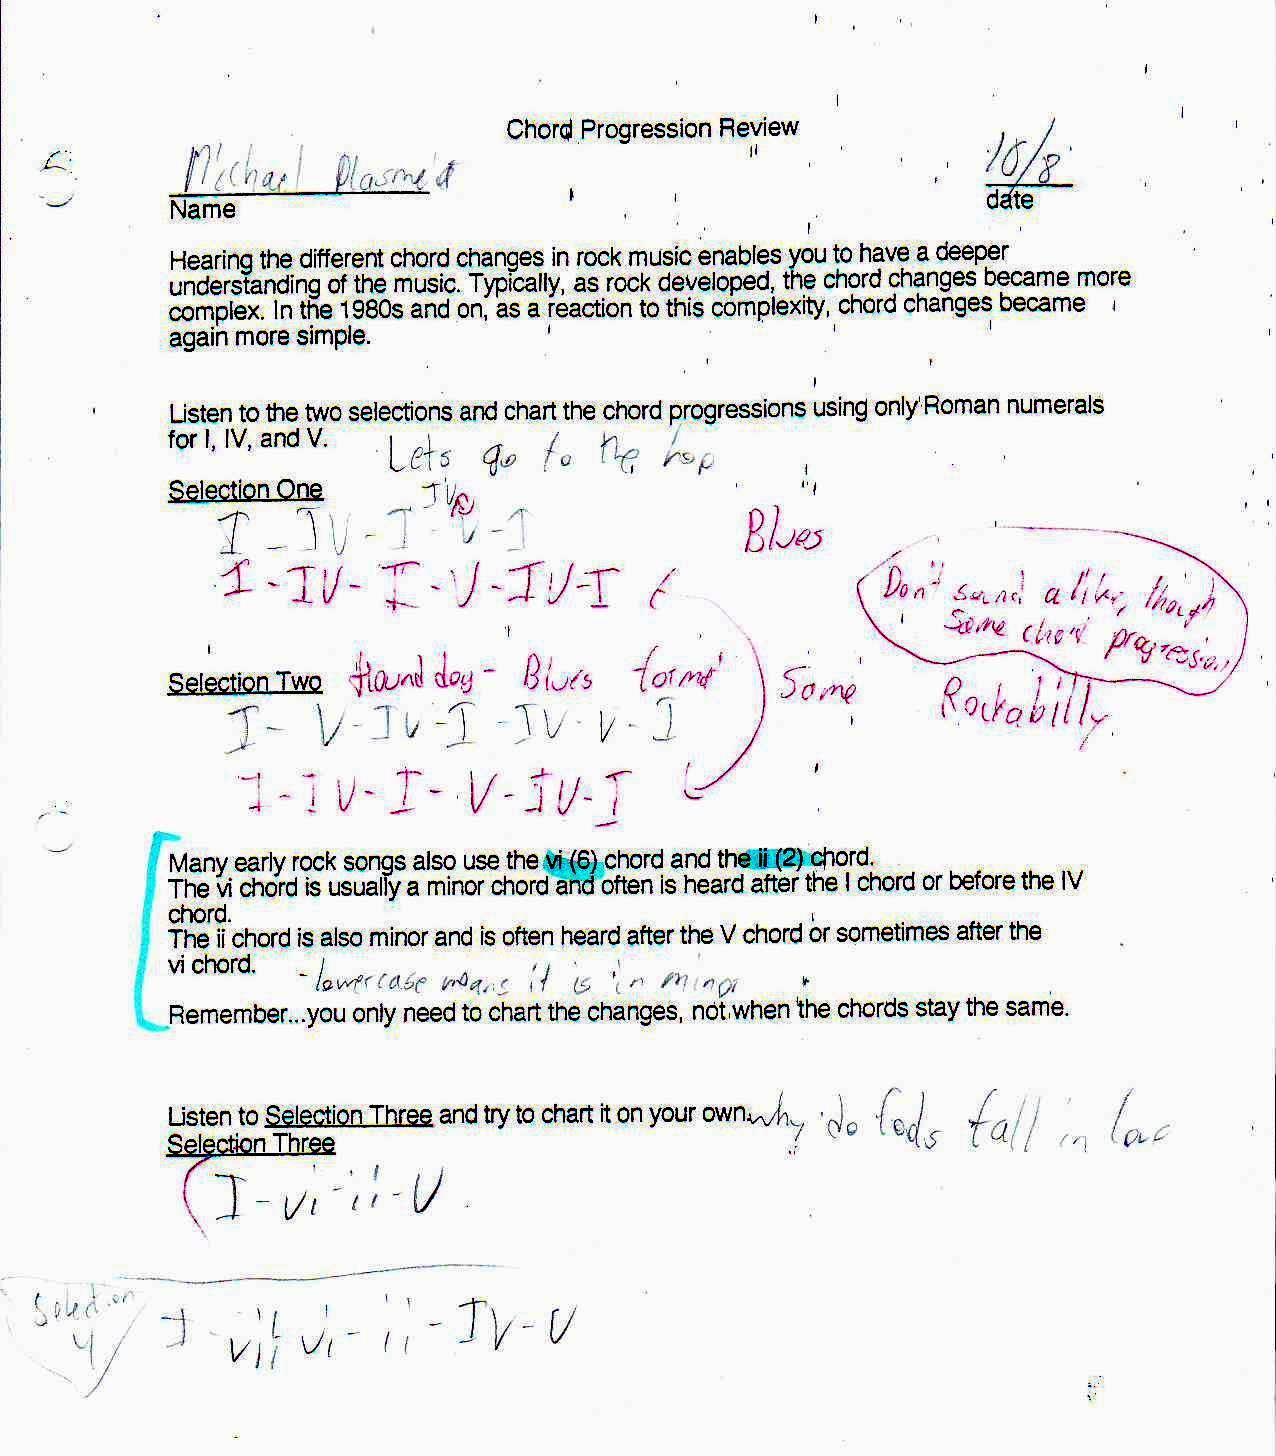 Chord Progression Review
Michael
10/8
Name
date
Hearing the different chord changes in rock music enables you to have a deeper
understanding of the music. Typically, as rock developed, the chord changes became more
complex. In the 1980s and on, as a reaction to this complexity, chord changes became
again more simple.
Listen to the two selections and chart the chord progressions using only Roman numerals
for I, IV, and V.
Lets go to the hop
Selection One
IV
I - IV - I - V - I
Blues
I - IV - I - V - IV - I
Don't sound alike, though
Same chord progression
Selection Two
Hound dog - Blues format
Same
Rockabilly
I - V - IV - I - IV - V - I
I - IV - I - V - IV - I
Many early rock songs also use the vi (6) chord and the ii (2) chord.
The vi chord is usually a minor chord and often is heard after the I chord or before the IV
chord.
The ii chord is also minor and is often heard after the V chord or sometimes after the
vi chord.
- lowercase means it is in minor
Remember...you only need to chart the changes, not when the chords stay the same.
Listen to Selection Three and try to chart it on your own.
why do fools fall in love
Selection Three
I - vi - ii - V
Selection
4
I - vii - vi - ii - IV - V